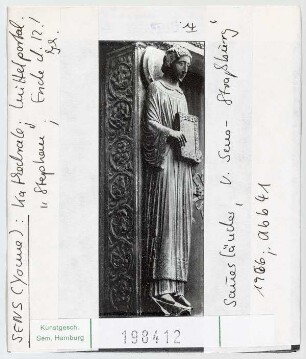 SENS (Yonne): Kathedrale: Mittelportal.
Stephan; Ende d. 12.
Sauerländer, v. Sens - Straßburg
1966, Abb 41
Kunstgesch.
Sem. Hamburg
198412